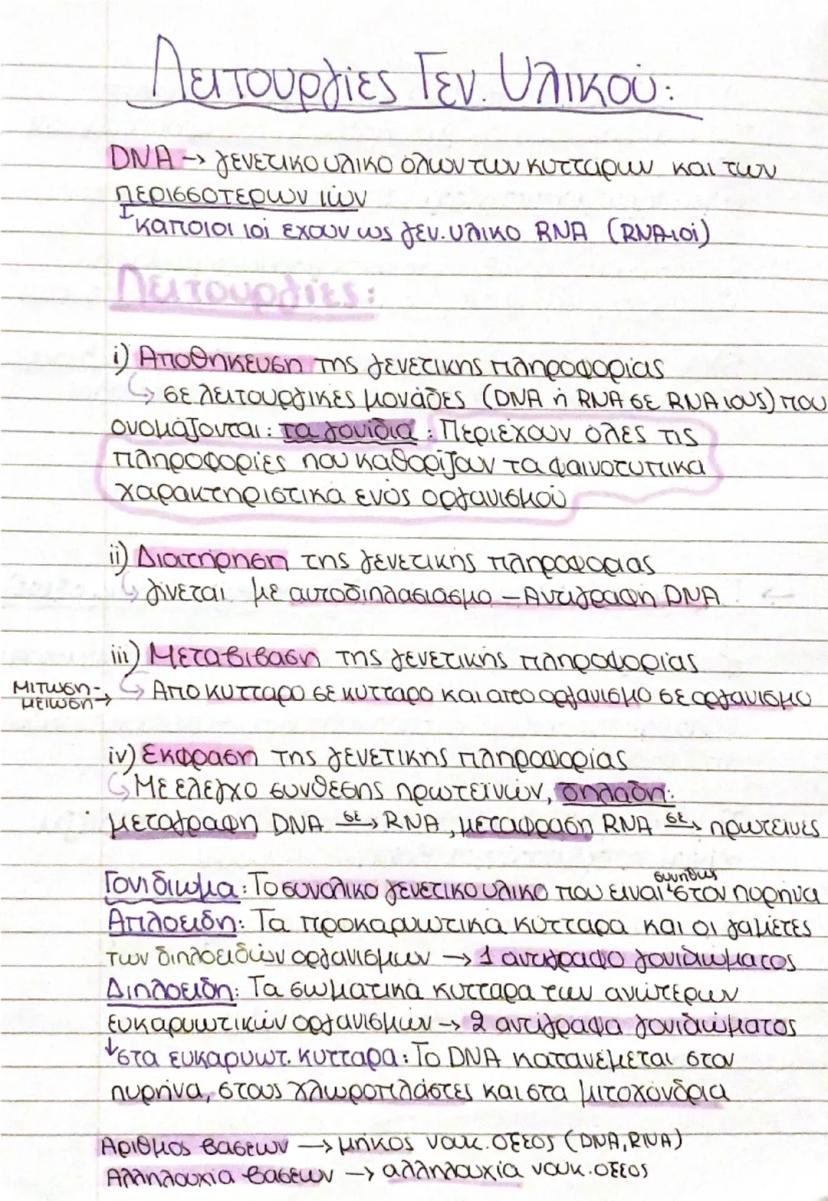 Λειτουργίες Γεν. Υλικού:
DNA → γενετικο υλικο όλων των κυττάρων και των
περισσοτερων ιών
κάποιοι ιοί έχουν ως γεν. υλικο RNA (RNA-ιοί)
Λειτουργίες:
i) Αποθήκευση της γενετικής πληροφορίας
↳ σε λειτουργικές μονάδες (DNA ή RNA σε RNA ιους) που
ονομάζονται: τα γονίδια: Περιέχουν όλες τις
πληροφορίες που καθορίζουν τα φαινοτυπικα
χαρακτηριστικά ενός οργανισμού
ii) Διατήρηση της γενετικής πληροφοριας
↳ γίνεται με αυτοδιπλασιασμο – Αντιγραφή DNA
iii) Μεταβιβαση της γενετικής πληροφορίας
Μιτωση-
μειωση→ ↳ Απο κυτταρο σε κυτταρο και απο οργανισμο σε οργανισμο
iv) Εκφραση της γενετικής πληροφορίας
↳ Με ελεγχο συνθεσης πρωτεινών, δηλαδη:
μεταγραφη DNA σε→ RNA, μεταφραση RNA σε→ πρωτεινες
Γονιδιωμα: Το συνολικο γενετικο υλικο που ειναι συνηθως στον πυρήνα
Απλοειδη: Τα προκαρυωτικα κύτταρα και οι γαμέτες
των διπλοειδών οργανισμων → 1 αντιγραφο γονιδιωματος
Διπλοειδη: Τα σωματικα κυτταρα των ανώτερων
ευκαρυωτικών οργανισμών → 2 αντίγραφα γονιδιώματος
↓στα ευκαρυωτ. κυτταρα: Το DNA κατανέμεται στον
πυρήνα, στους χλωροπλάστες και στα μιτοχόνδρια
Αριθμος βασεων → μηκος νουκ. οξεος (DNA, RNA)
Αλληλουχία βασεων → αλληλουχία νουκ. οξεος